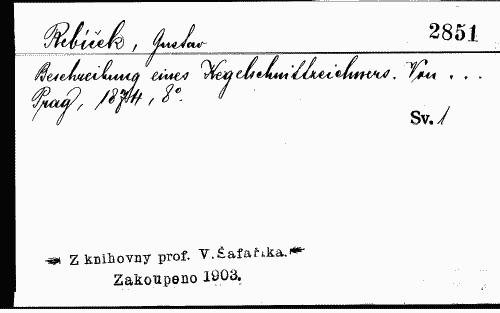 Rebíček, Gustav 2851
Beschreibung eines Kegelschnittzeichners. Von ...
Prag, 1874, 8°.
Sv. 1
Z knihovny prof. V. Šafaříka.
Zakoupeno 1903.